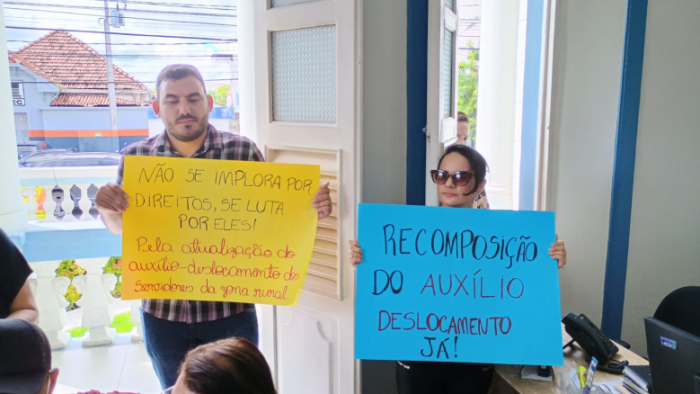 NÃO SE IMPLORA POR
DIREITOS, SE LUTA
POR ELES!
Pela atualização do
auxílio-deslocamento dos
Servidores da zona rural
RECOMPOSIÇÃO
DO AUXÍLIO
DESLOCAMENTO
JÁ!